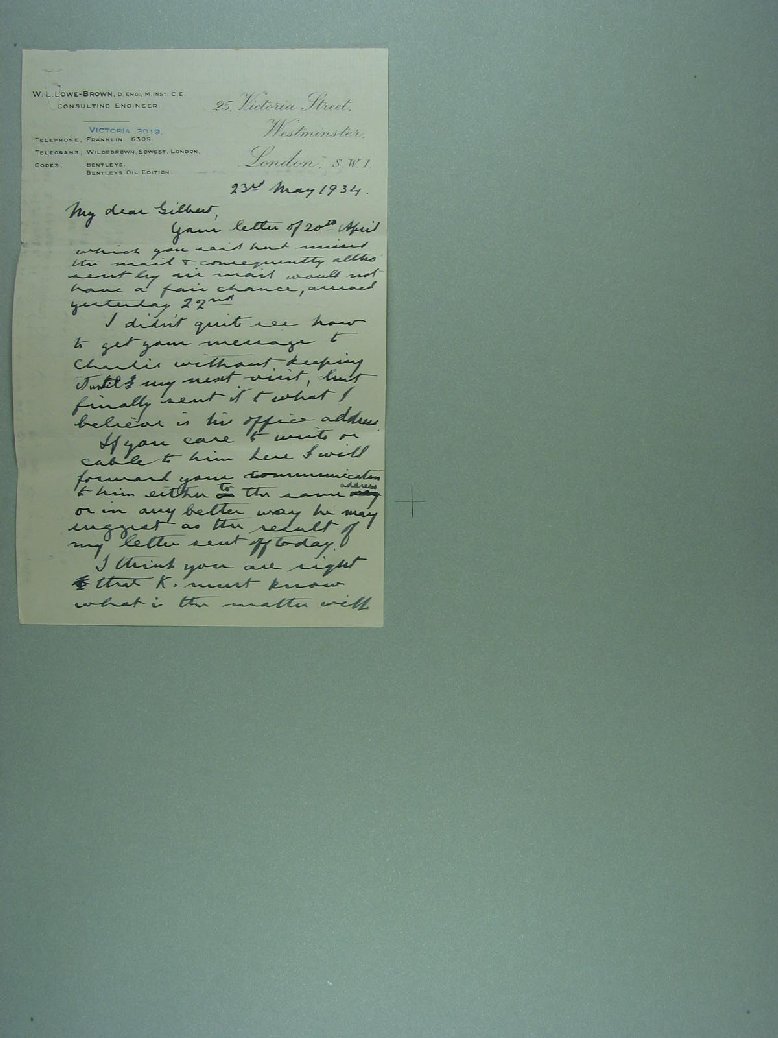 W. L. LOWE-BROWN, D. ENG., M. INST. C.E.
CONSULTING ENGINEER
25, Victoria Street,
Westminster,
London, S.W.1
VICTORIA 2019.
TELEPHONE, FRANKLIN 6309.
TELEGRAMS, WILOBROWN, SOWEST, LONDON.
CODES, BENTLEYS.
BENTLEYS OIL EDITION.
23rd May 1934.
My dear Gilbert,
Your letter of 20th April
which you said had missed
the mail & consequently altho
sent by air mail would not
have a fair chance, arrived
yesterday 22nd
I didn't quite see how
to get your message to
Charlie without keeping
it until my next visit, but
finally sent it to what I
believe is his office address.
If you care to write or
cable to him here I will
forward your communication
to him either to the same address
or in any better way he may
suggest as the result of
my letter sent off today.
I think you are right
that K. must know
what is the matter with